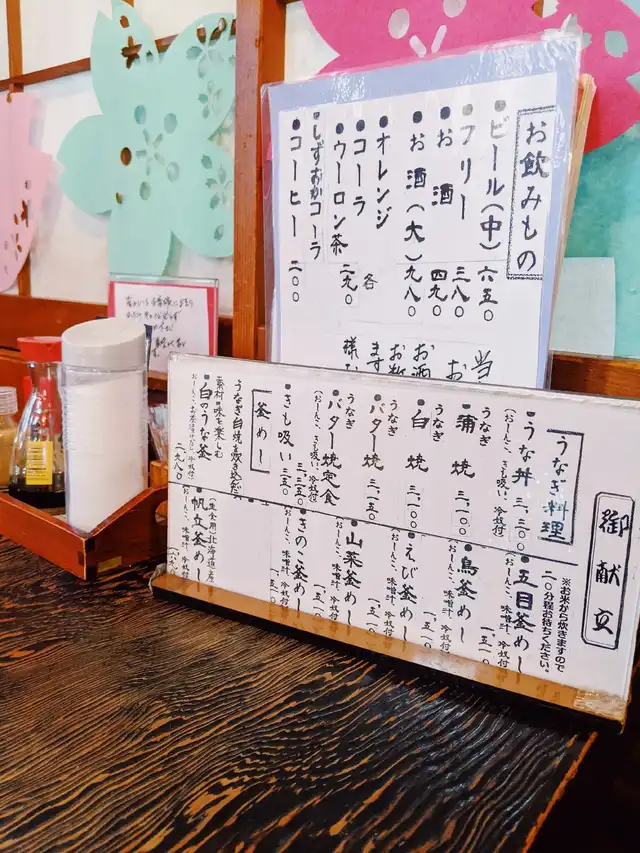 お飲みもの
・ビール(中) 六五〇
・フリー 三八〇
・お酒 四九〇
・お酒(大) 九八〇
・オレンジ
・コーラ
・ウーロン茶 二九〇
各
・しずおかコーラ
・コーヒー 二〇〇
御献立
うなぎ料理
・うな丼 二、三〇〇
(おしんこ、きも吸い、冷奴付)
うなぎ
・蒲焼 三、一〇〇
うなぎ
・白焼 三、一〇〇
うなぎ
・バター焼 三、一五〇
うなぎ
・バター焼定食
(おしんこ、きも吸い、冷奴付)
三、五五〇
・きも吸い 三五〇
釜めし
うなぎ白焼を炊き込んだ
素材の味を楽しむ
・白のうな釜
二、九八〇
※お米から炊きますので
二〇分程お待ちください。
・五目釜めし
(おしんこ、味噌汁、冷奴付)
一、五一〇
・鳥釜めし
(おしんこ、味噌汁、冷奴付)
一、五一〇
・えび釜めし
(おしんこ、味噌汁、冷奴付)
・山菜釜めし
(おしんこ、味噌汁、冷奴付)
・きのこ釜めし
(おしんこ、味噌汁、冷奴付)
(生食用)北海道産
・帆立釜めし
(おしんこ、味噌汁、冷奴付)